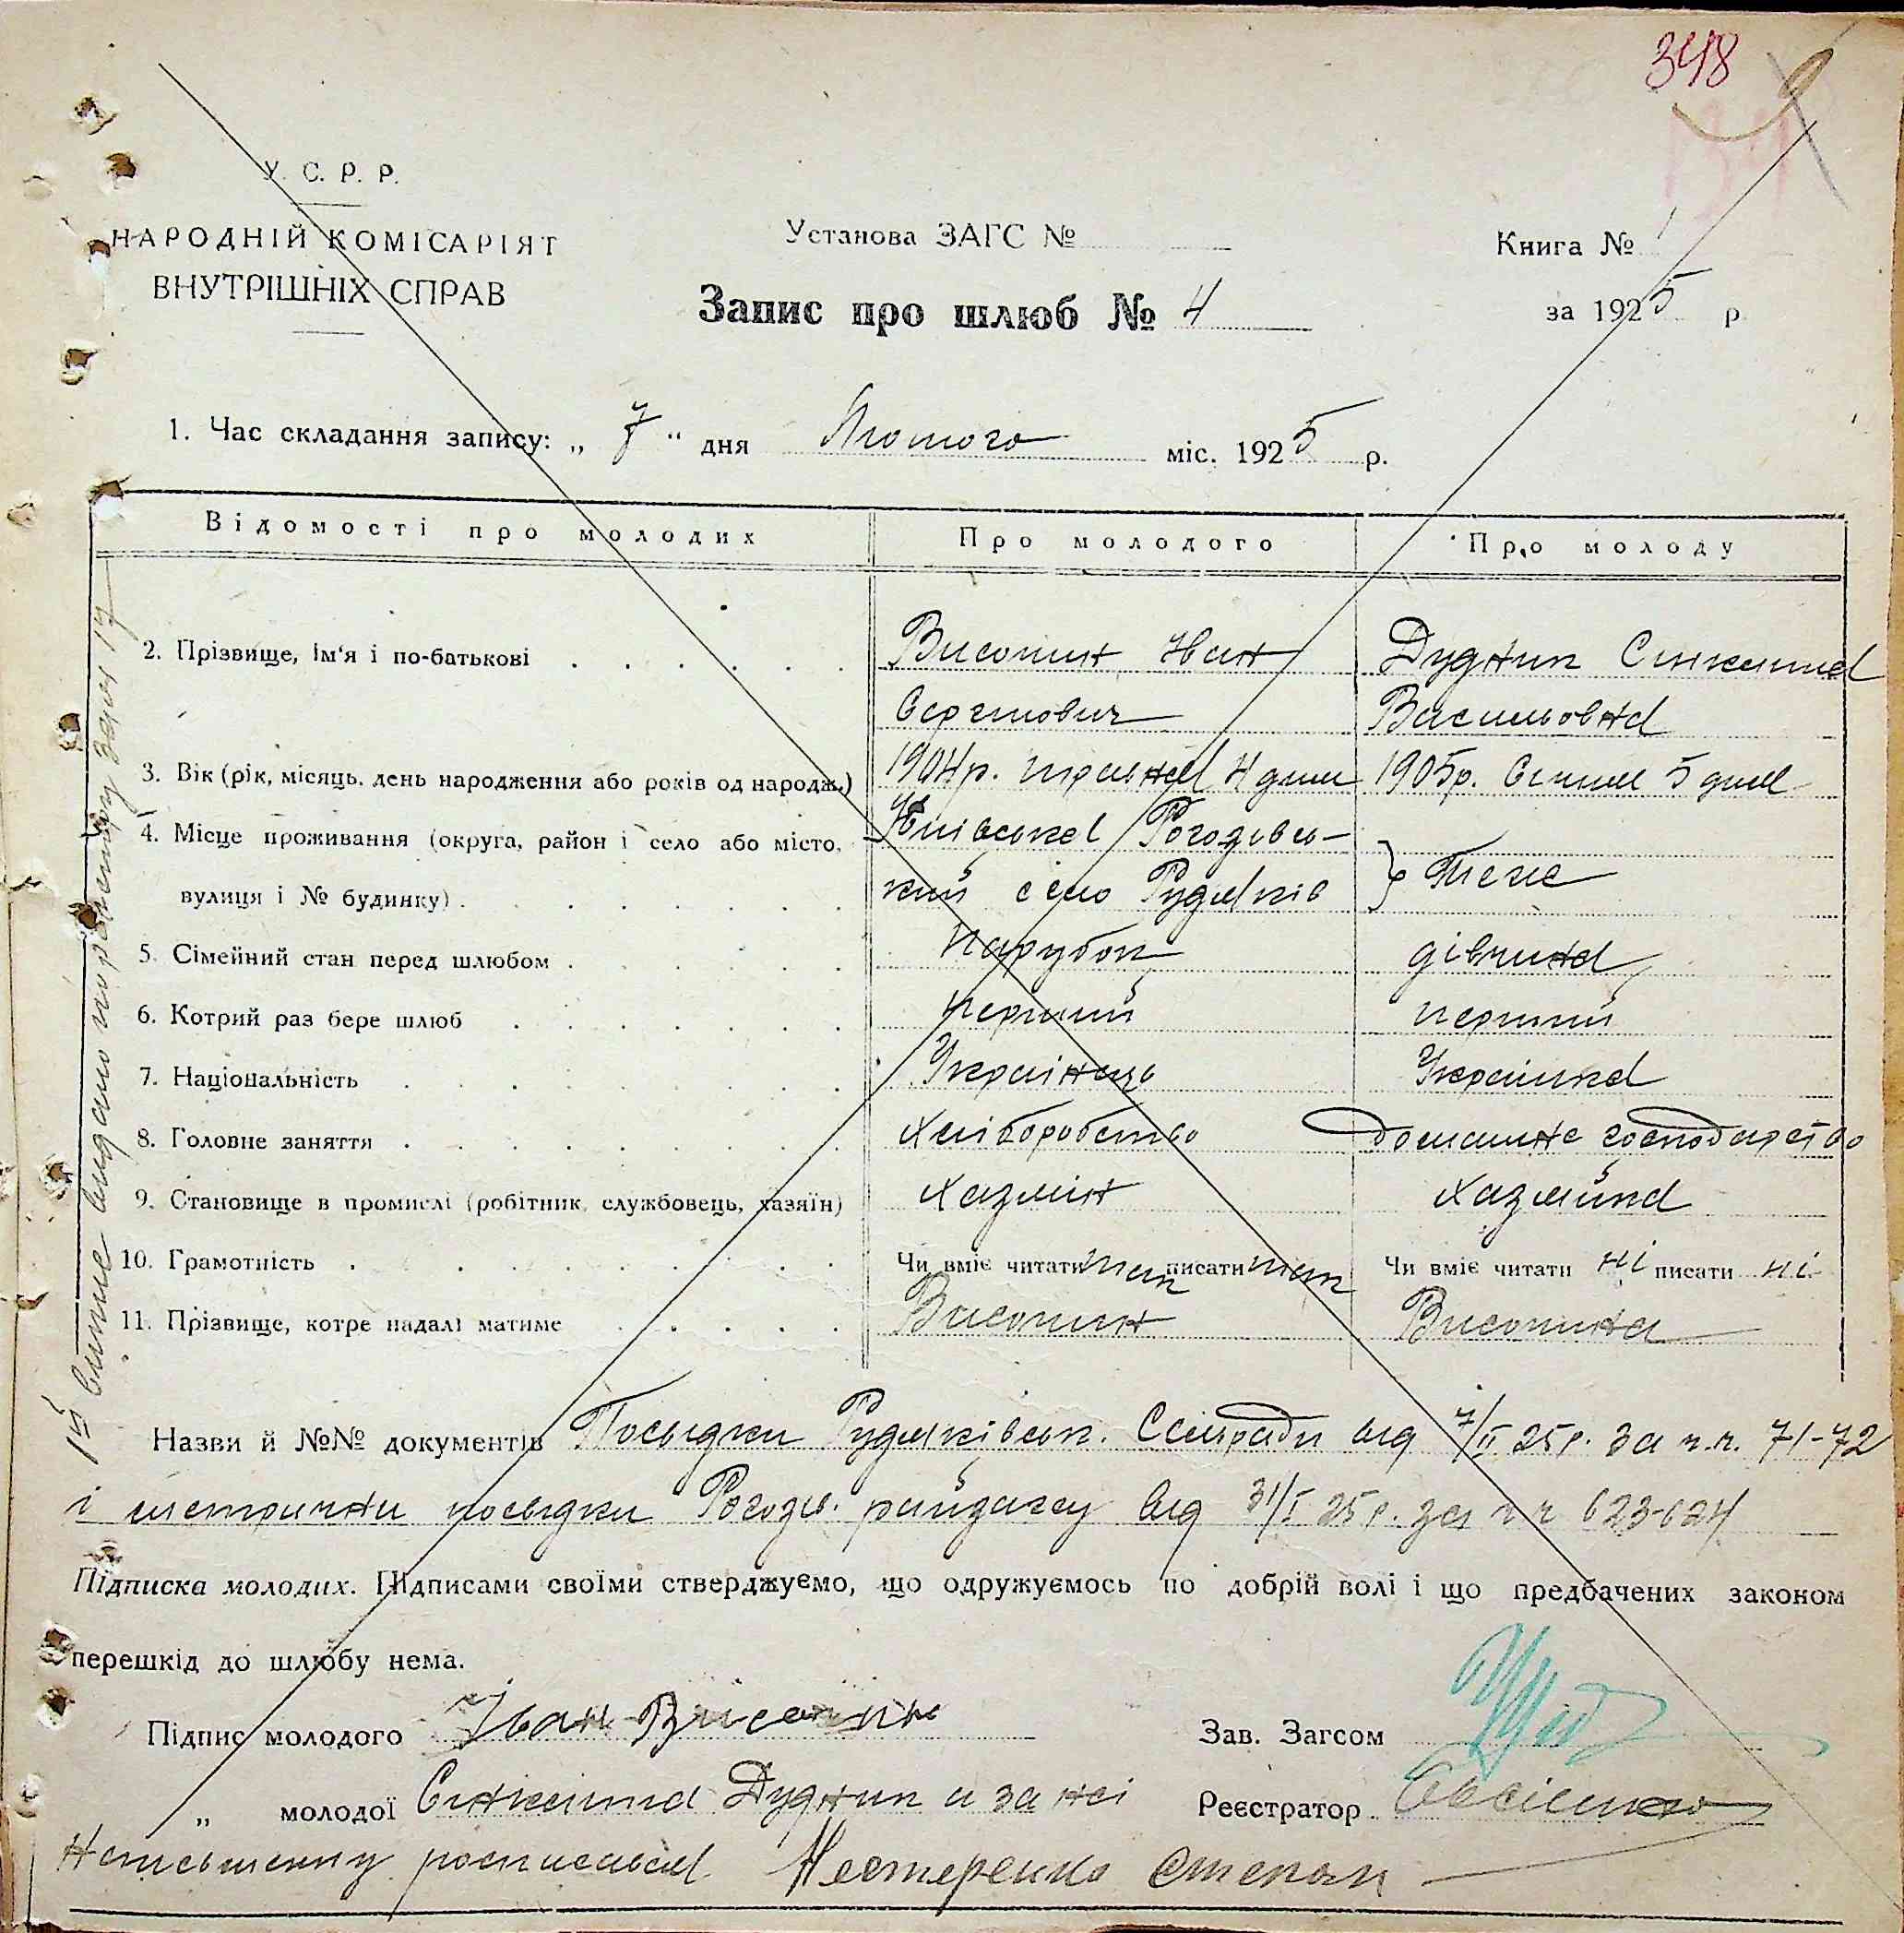 348
У. С. Р. Р.
НАРОДНІЙ КОМІСАРІЯТ
ВНУТРІШНІХ СПРАВ
Установа ЗАГС №
Книга № 1
Запис про шлюб № 4
за 1925 р
1. Час складання запису: „ 7 “ дня Лютого міс. 1925 р.
Відомості про молодих Про молодого Про молоду
2. Прізвище, ім‘я і по-батькові Височин Иван Дудник Синклита
Сергиович Васильовна
3. Вік (рік, місяць, день народження або років од народж.) 1904р. травня 4 дни 1905р. Січня 5 дня
4. Місце проживання (округа, район і село або місто, Київська Рогозівсь-
вулиця і № будинку) кий село Рудяків Теже
5. Сімейний стан перед шлюбом парубок дівчина
6. Котрий раз бере шлюб перший перший
7. Національність Українець Українка
8. Головне заняття Хліборобство домашнє господарство
9. Становище в промислі (робітник, службовець, хазяїн) Хазяїн Хазяйка
10. Грамотність Чи вміє читати так писати так Чи вміє читати ні писати ні
11. Прізвище, котре надалі матиме Височин Височина
Назви й №№ документів Посыдки Рудяківськ. Сільради від 7/II 25р. за ч.ч. 71-72
і метрични посыдки Рогозів. райзагсу від 31/I 25 р. за ч ч 623-624
Підписка молодих. Підписами своїми стверджуємо, що одружуємось по добрій волі і що предбачених законом
перешкід до шлюбу нема.
Підпис молодого Іван Височин Зав. Загсом
„ молодої Синклита Дудник а за неі Реєстратор
Неписьменну росписався Нестеренко Степан
1й витяг видано